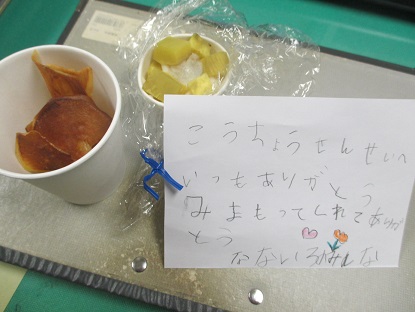 こうちょうせんせいへ
いつもありがとう
みまもってくれてありが
とう
なないろみんな